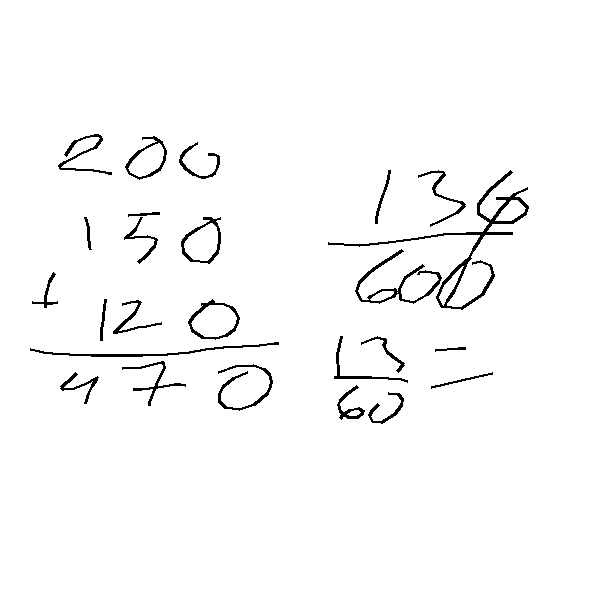 200
150
+ 120
470
130
600
13
60 =